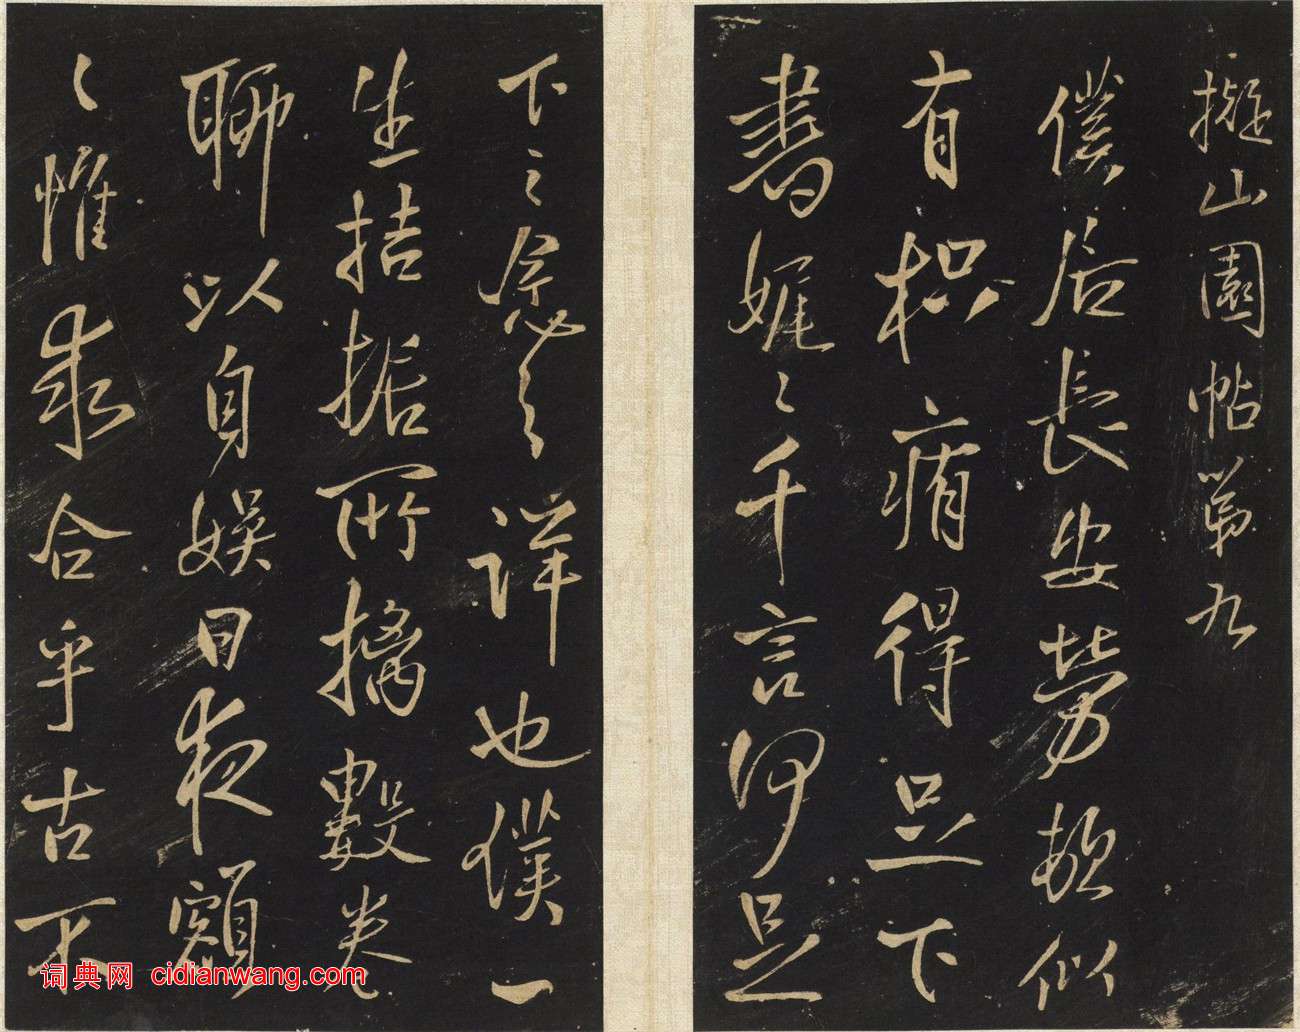 擬山園帖第九
僕居長安勞頓似
有枳痏得足下
書娓〻千言何足
下之念之詳也僕一
生拮据所摛數卷
聊以自娛日夜額
〻惟求合乎古不
词典网 cidianwang.com